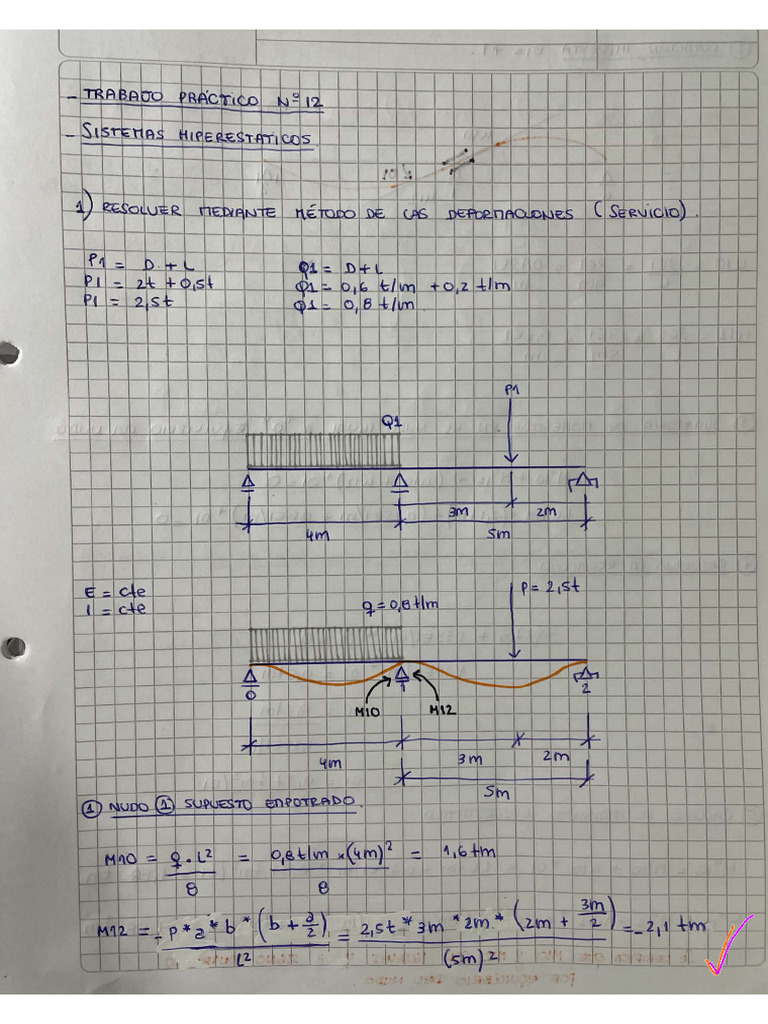 - TRABAJO PRÁCTICO Nº 12
- SISTEMAS HIPERESTATICOS.
1) RESOLVER MEDIANTE MÉTODO DE LAS DEFORMACIONES (SERVICIO).
P1 = D + L    Q1 = D + L
P1 = 2t + 0,5t    Q1 = 0,6 t/m + 0,2 t/m
P1 = 2,5t    Q1 = 0,8 t/m
P1
Q1
3m    2m
4m    5m
E = cte
I = cte
q = 0,8 t/m    P = 2,5t
0    1    2
M10    M12
4m    3m    2m
5m
① NUDO ① SUPUESTO EMPOTRADO.
M10 = q . L² / 8 = 0,8 t/m × (4m)² / 8 = 1,6 tm
M12 = - P * a * b * (b + a/2) / L² = 2,5t * 3m * 2m * (2m + 3m/2) / (5m)² = -2,1 tm